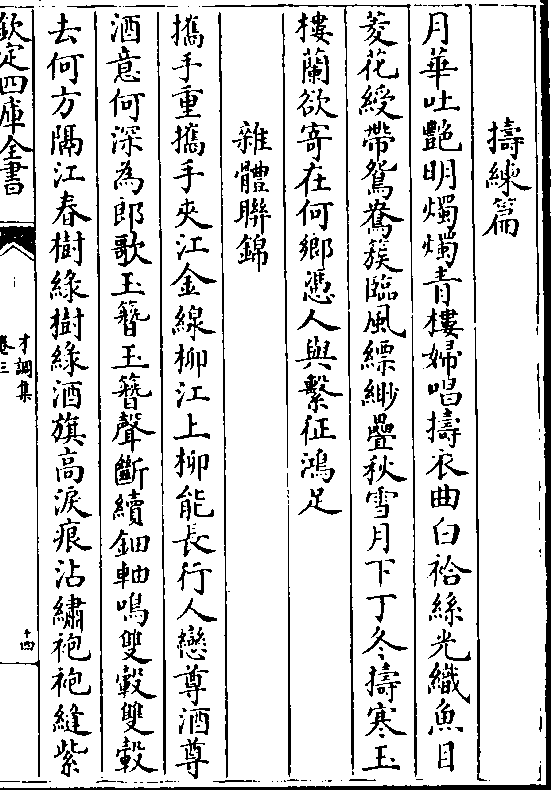 擣練篇
月華吐艷明燭燭青樓婦唱擣衣曲白袷絲光織魚目
菱花綬帶鴛鴦簇臨風縹緲疊秋雪月下丁冬擣寒玉
樓蘭欲寄在何鄉憑人與繫征鴻足
雜體聯錦
攜手重攜手夾江金線柳江上柳能長行人戀尊酒尊
酒意何深為郎歌玉簪玉簪聲斷續鈿軸鳴雙轂雙轂
去何方隔江春樹綠樹綠酒旗高淚痕沾繡袍袍縫紫
欽定四庫全書
才調集
卷三
十四